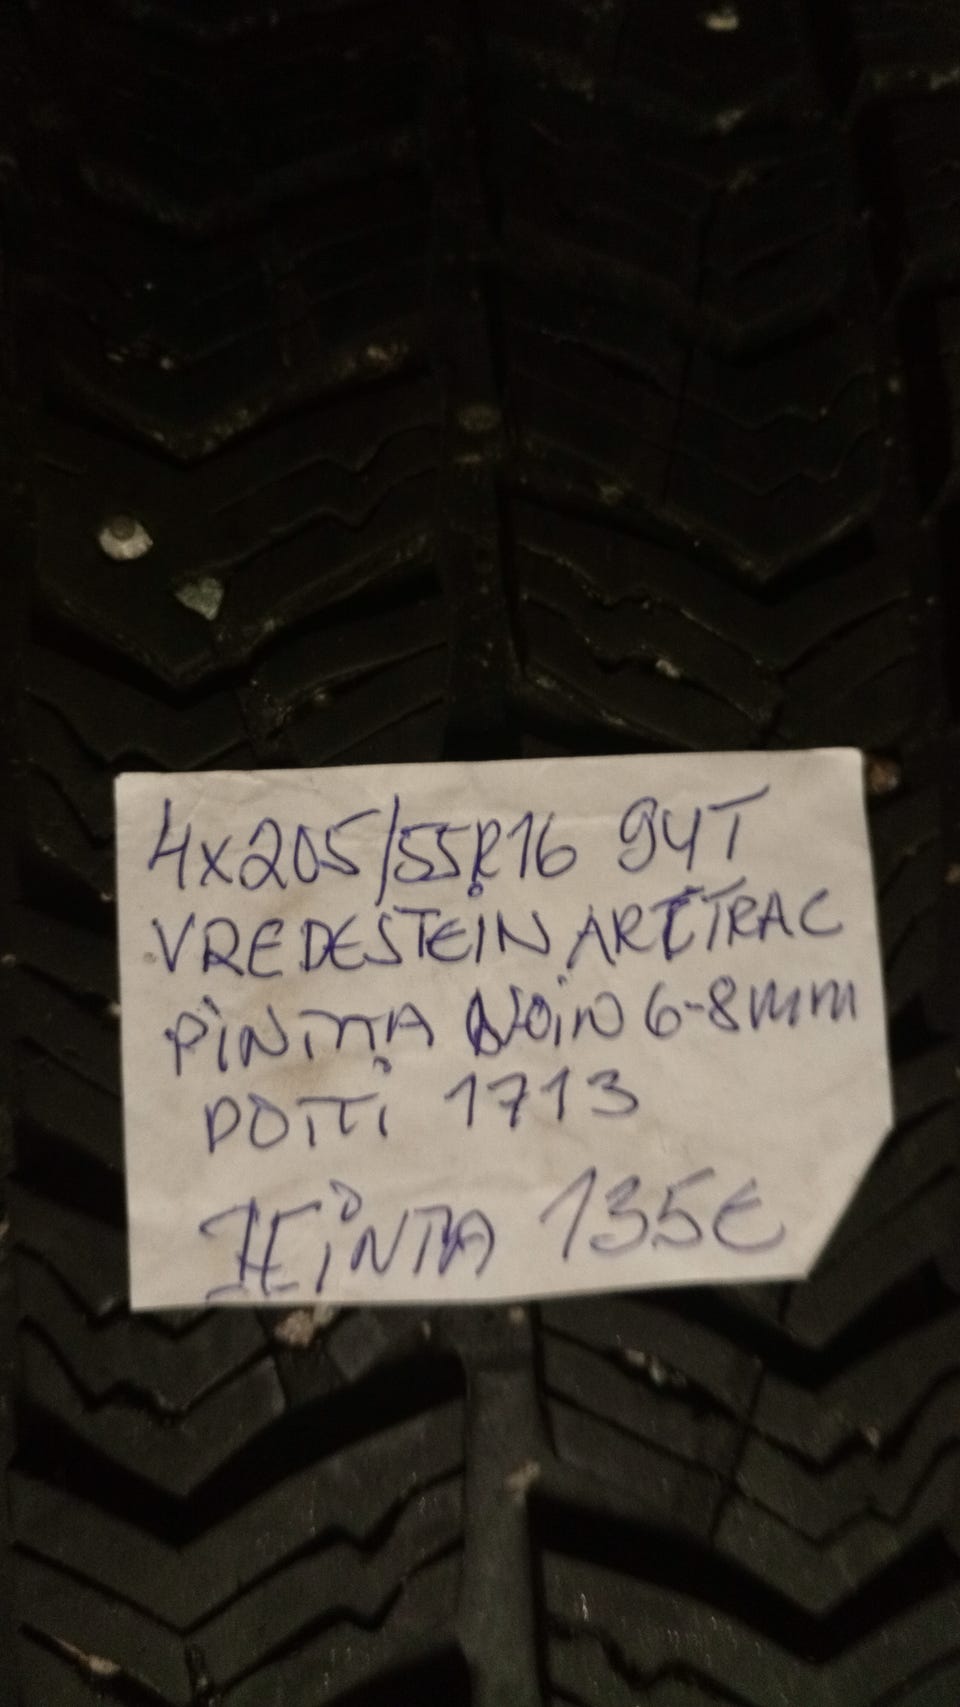 4x205/55R16 94T
VREDESTEIN ARCTRAC
PINTTA NOIN 6-8mm
DOTTI 1713
HINTA 135€